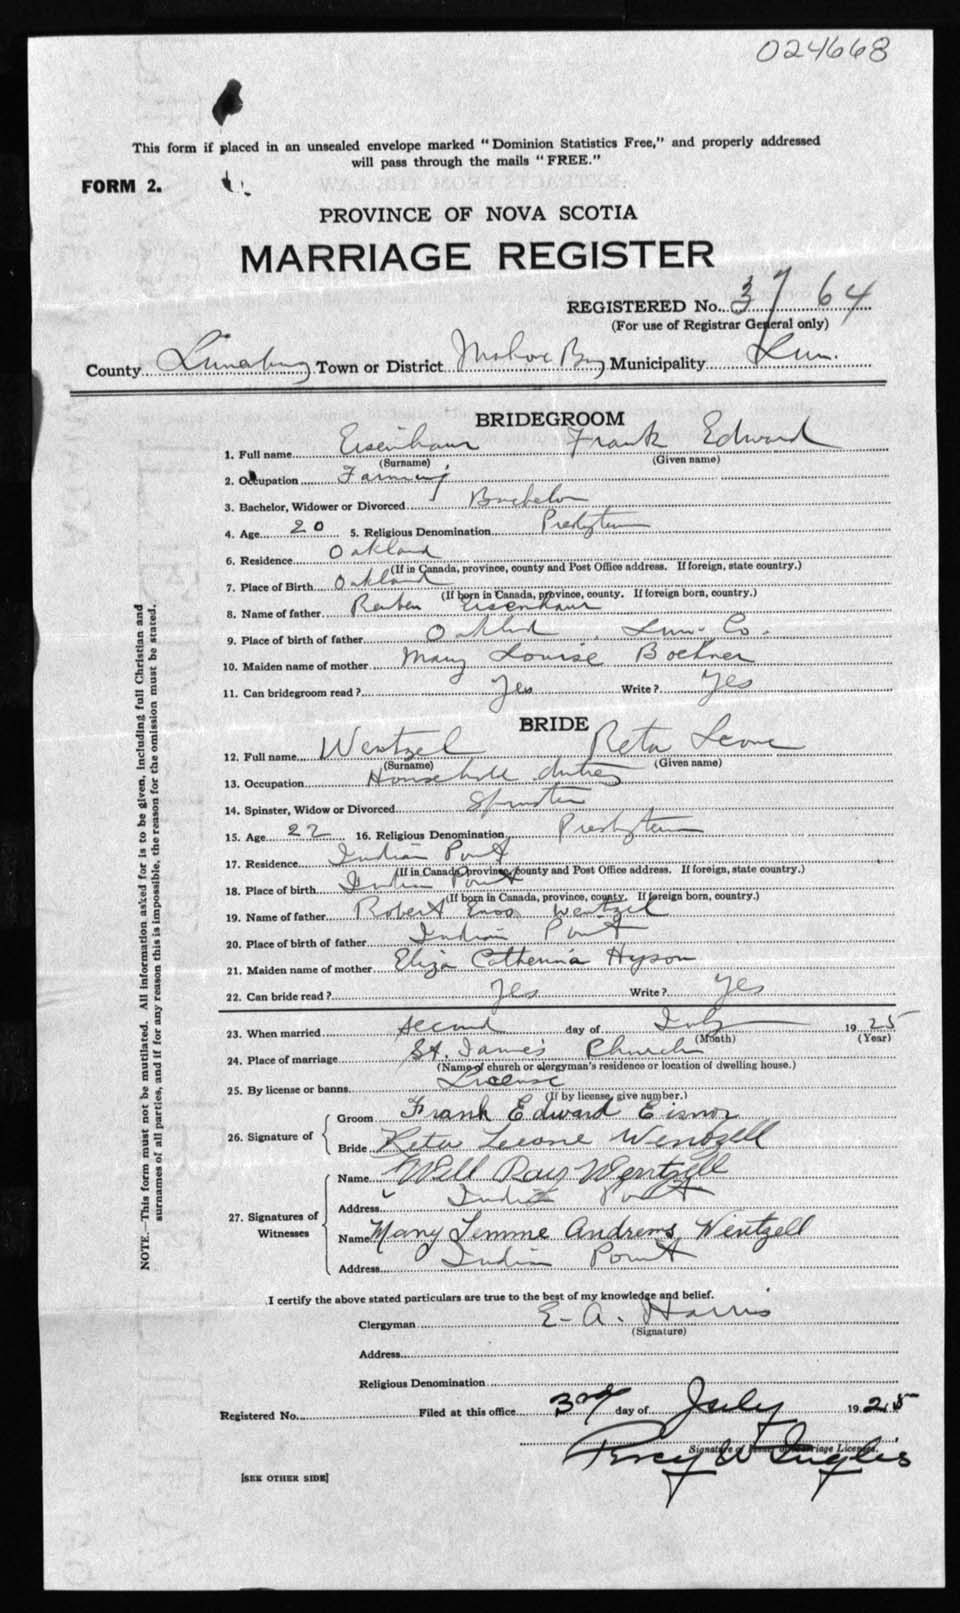 024668
This form if placed in an unsealed envelope marked "Dominion Statistics Free," and properly addressed
will pass through the mails "FREE."
FORM 2.
PROVINCE OF NOVA SCOTIA
MARRIAGE REGISTER
REGISTERED No. 3764
(For use of Registrar General only)
County Lunenburg Town or District Mahone Bay Municipality Lun.
BRIDEGROOM
1. Full name Eisenhaur Frank Edward
(Surname) (Given name)
2. Occupation Farming
3. Bachelor, Widower or Divorced Bachelor
4. Age 20 5. Religious Denomination Presbyterian
6. Residence Oakland
(If in Canada, province, county and Post Office address. If foreign, state country.)
7. Place of Birth Oakland
(If born in Canada, province, county. If foreign born, country.)
8. Name of father Reuben Eisenhaur
9. Place of birth of father Oakland, Lun. Co.
10. Maiden name of mother Mary Louise Boehner
11. Can bridegroom read? Yes Write? Yes
BRIDE
12. Full name Wentzel Reta Leone
(Surname) (Given name)
13. Occupation Household duties
14. Spinster, Widow or Divorced Spinster
15. Age 22 16. Religious Denomination Presbyterian
17. Residence Indian Point
(If in Canada, province, county and Post Office address. If foreign, state country.)
18. Place of birth Indian Point
(If born in Canada, province, county. If foreign born, country.)
19. Name of father Robert Enos Wentzel
20. Place of birth of father Indian Point
21. Maiden name of mother Eliza Catherina Hyson
22. Can bride read? Yes Write? Yes
23. When married second day of July 1925
(Month) (Year)
24. Place of marriage St. James Church
(Name of church or clergyman's residence or location of dwelling house.)
25. By license or banns License
(If by license, give number.)
26. Signature of Groom Frank Edward Eisnor
Bride Reta Leone Wentzell
27. Signatures of Witnesses Name Will Ray Wentzell
Address Indian Point
Name Mary Andrews Wentzell
Address Indian Point
I certify the above stated particulars are true to the best of my knowledge and belief.
Clergyman E. A. Harris
(Signature)
Address
Religious Denomination
Registered No. Filed at this office 3rd day of July 1925
Percy W Inglis
Signature of Issuer of Marriage Licenses.
[SEE OTHER SIDE]
NOTE.—This form must not be mutilated. All information asked for is to be given, including full Christian and
surnames of all parties, and if for any reason this is impossible, the reason for the omission must be stated.